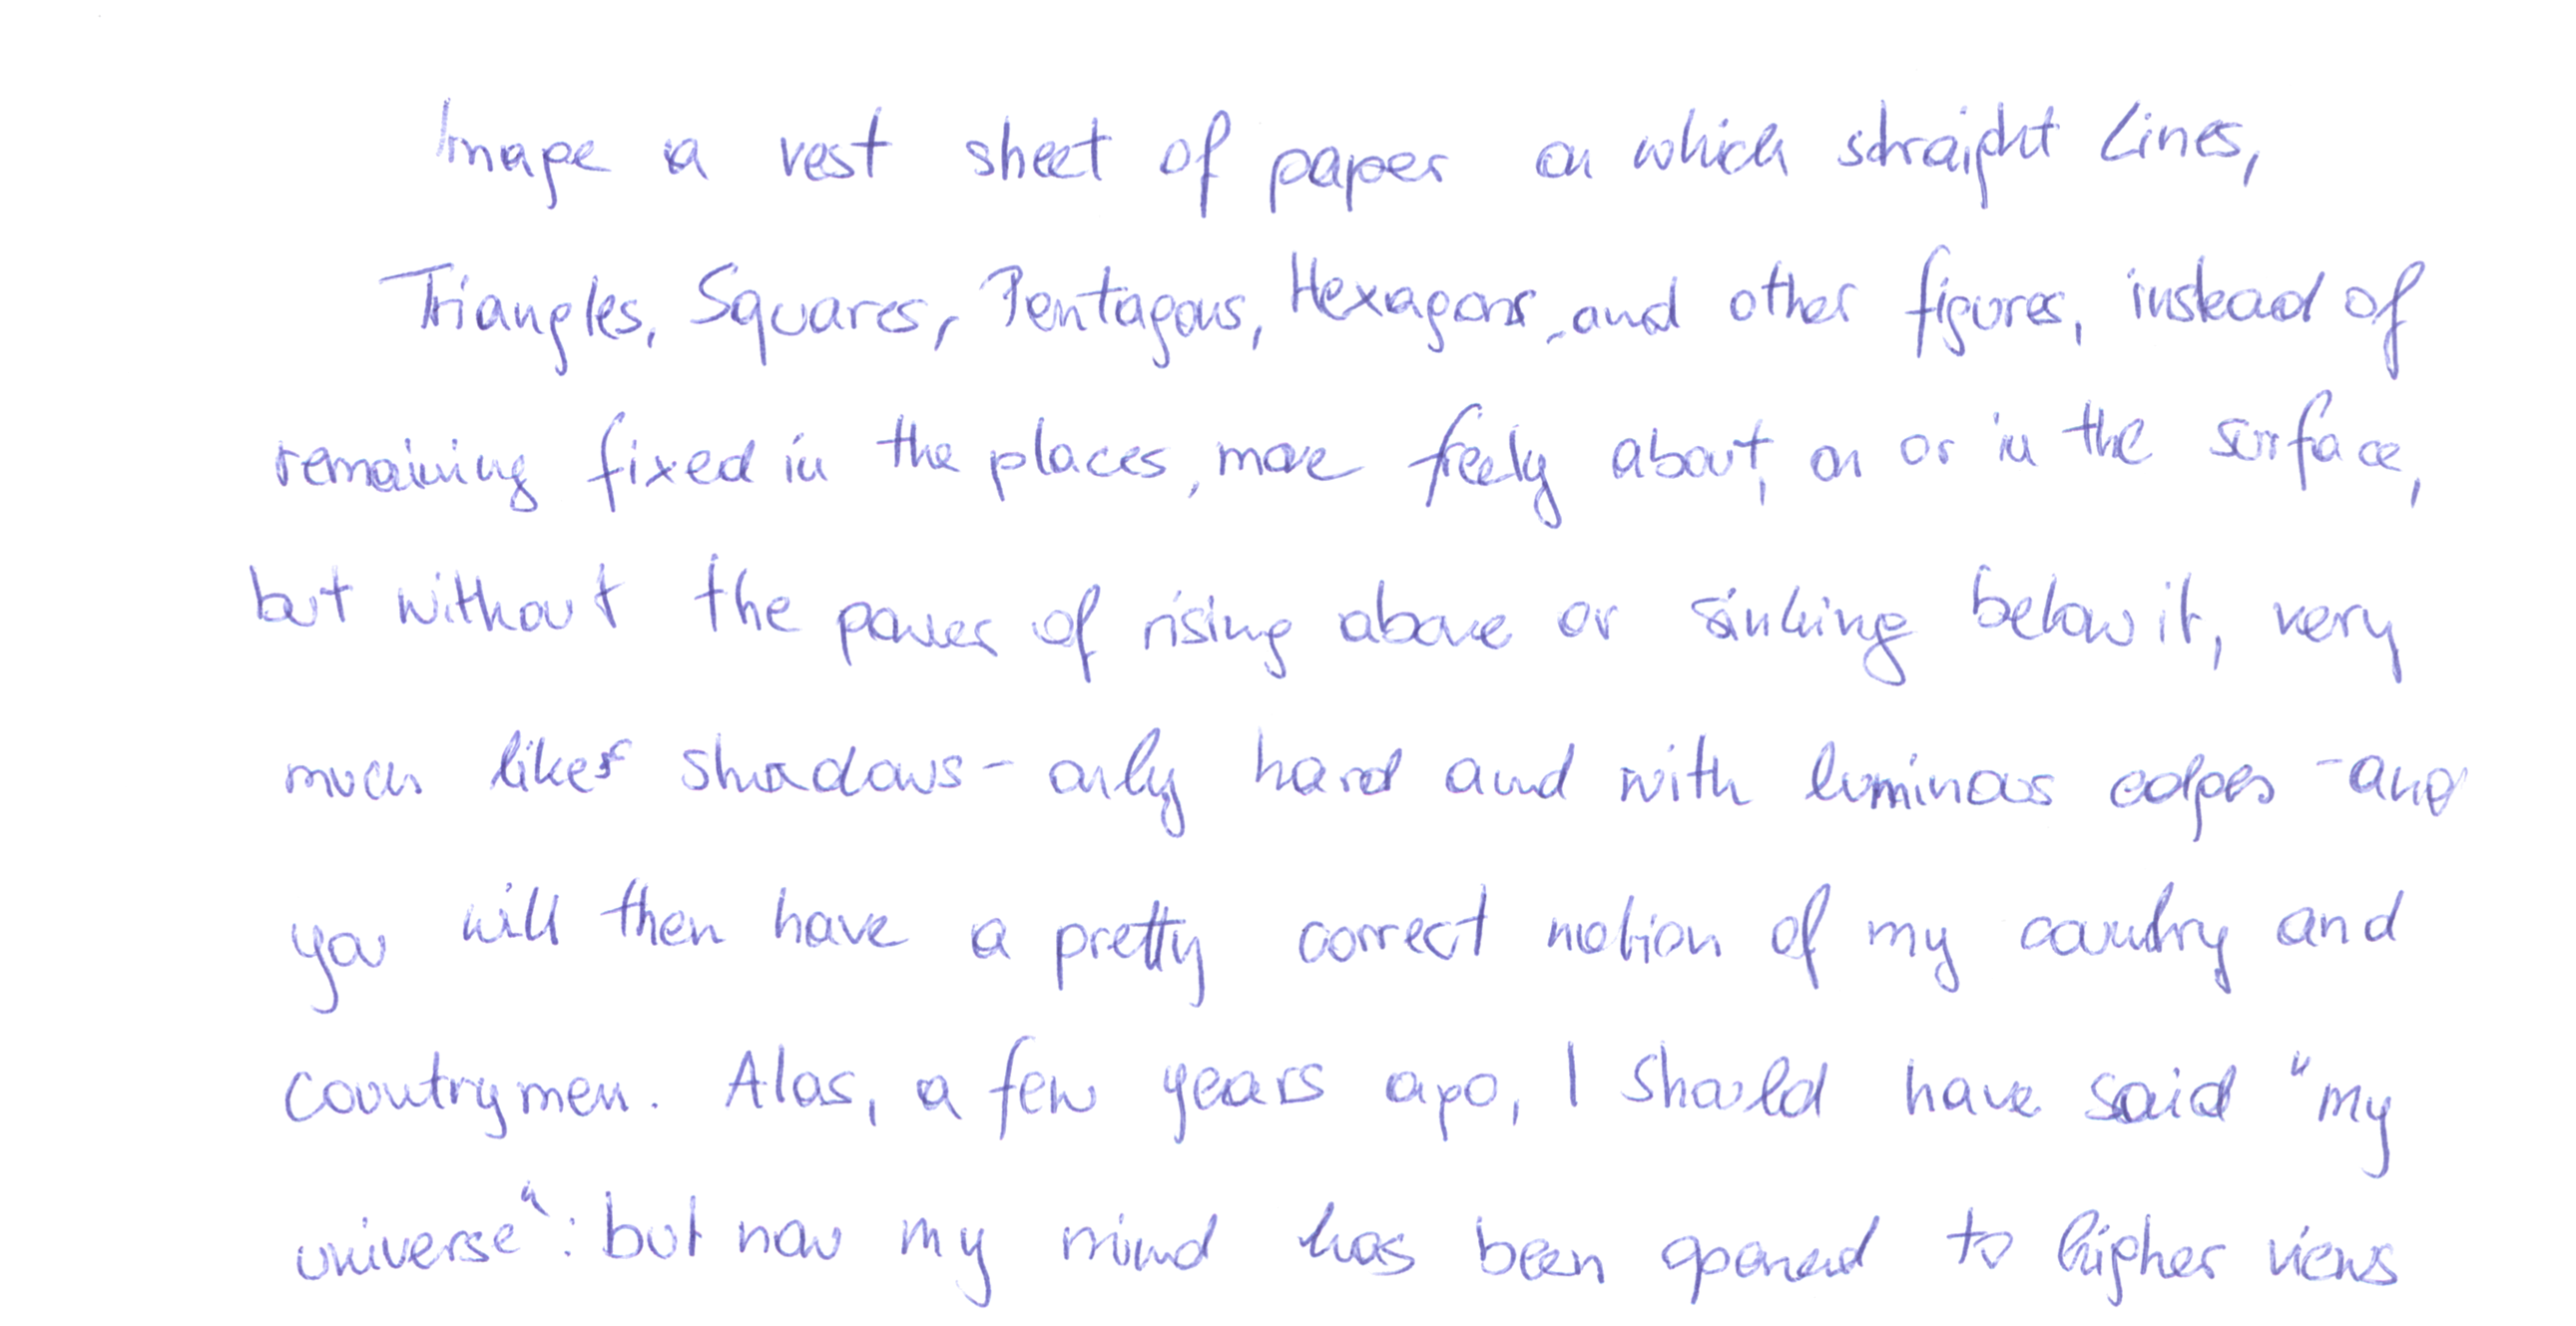 Image a vest sheet of paper on which straight Lines,
Triangles, Squares, Pentagons, Hexagons, and other figures, instead of
remaining fixed in the places, move freely about, on or in the surface,
but without the power of rising above or sinking below it, very
much likes shadows - only hard and with luminous edges - and
you will then have a pretty correct notion of my country and
countrymen. Alas, a few years ago, I should have said "my
universe": but now my mind has been opened to higher views